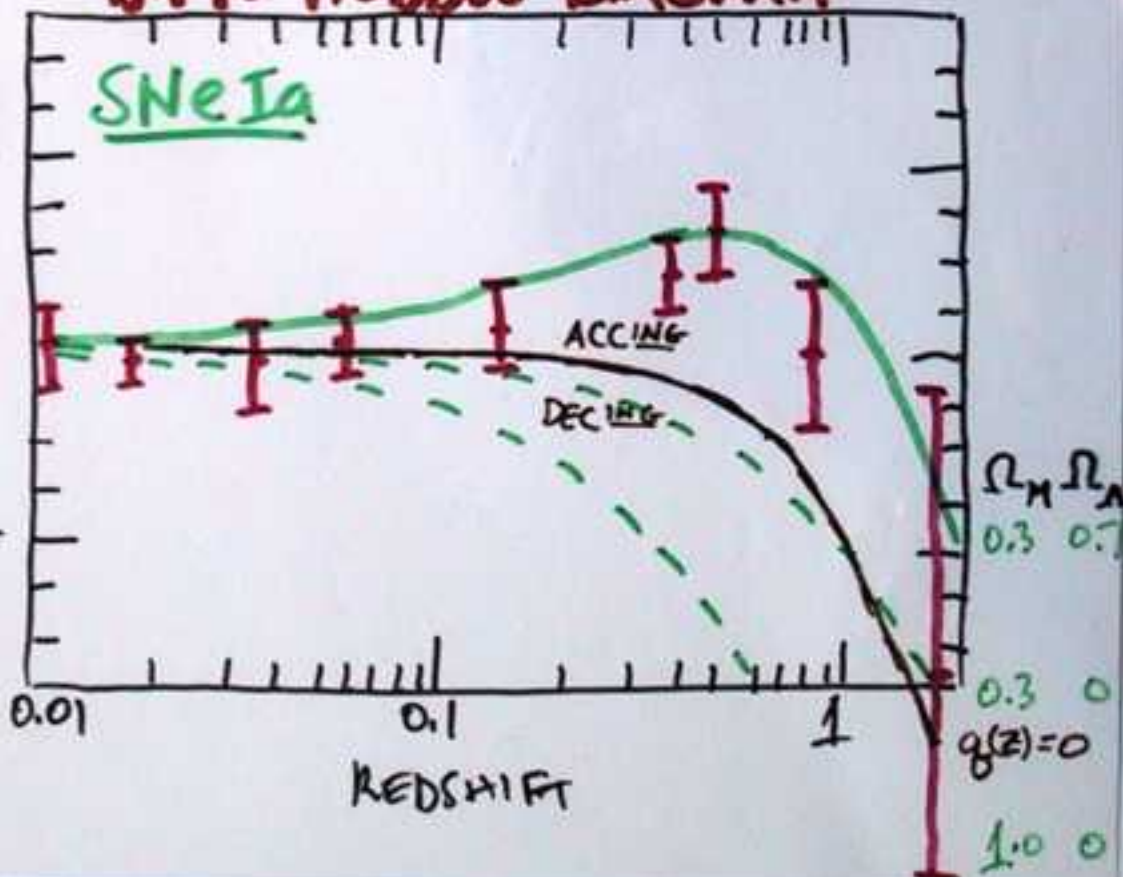 SNeIa
ACCING
DECING
Ω_M Ω_Λ
0.3 0.7
0.3 0
q(z)=0
1.0 0
0.01 0.1 1
REDSHIFT